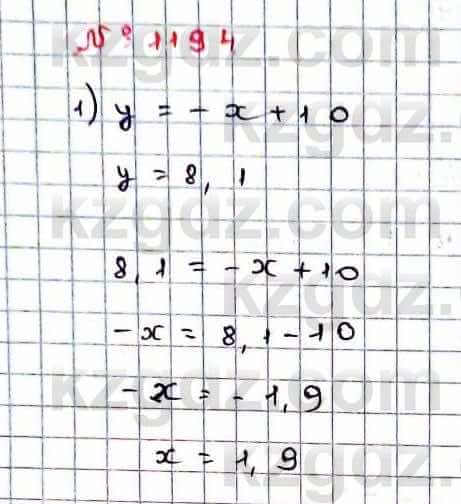 № 1194
1) y = -x + 10
y = 8,1
8,1 = -x + 10
-x = 8,1 - 10
-x = -1,9
x = 1,9
kzgdz.com
kzgdz.com
kzgdz.com
kzgdz.com
kzgdz.com